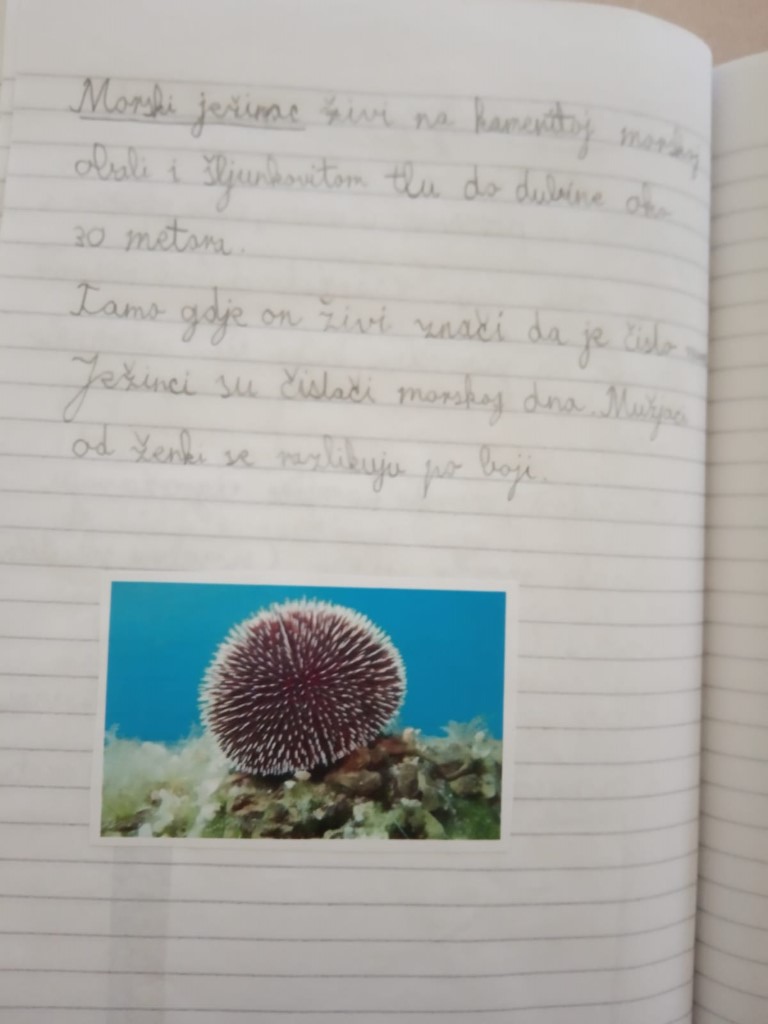 Morski ježinac živi na kamenitoj morskoj
obali i šljunkovitom tlu do dubine oko
30 metara.
Tamo gdje on živi znači da je čisto
Ježinci su čistači morskog dna. Mužjaci
od ženki se razlikuju po boji.